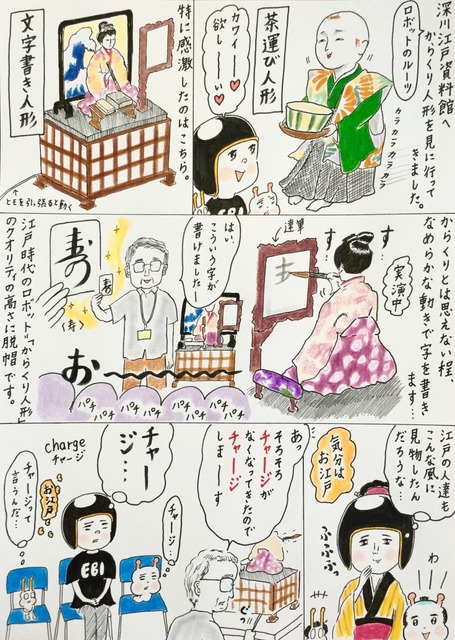 深川江戸資料館へ
からくり人形を見に行って
きました。
ロボットのルーツ
カラカラカラカラカラ
茶運び人形
カワイーー
欲しーーい
EBI
特に感激したのはこちら。
文字書き人形
↑ヒモを引っ張ると動く
からくりとは思えない程、
なめらかな動きで字を書き
ます…
す…
す…
実演中
達筆
はい、
こういう字が
書けました
寿
寿の
〈寿〉
お
パチ
パチ
パチ
パチ
パチ
パチ
江戸時代のロボット「からくり人形」
のクオリティの高さに脱帽です。
江戸の人達も
こんな風に
見物したん
だろうな…
気分は
お江戸
ふふふっ
わ
あっ
そろそろ
チャージが
なくなってきたので
チャージ
しまーす
チャージ…
チャー
ジ…
charge
チャージ
お江戸
チャージって
言うんだ…
EBI